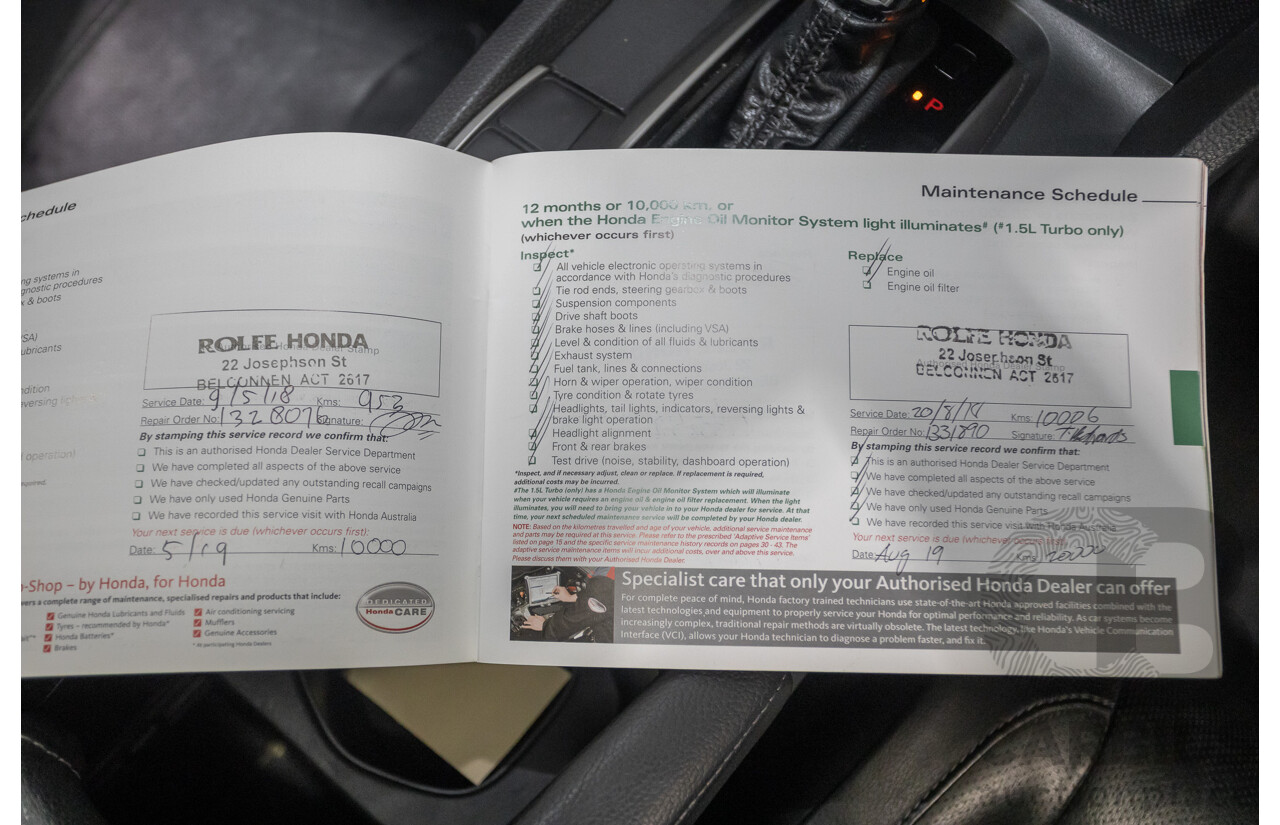 P
chedule
ng systems in
gnostic procedures
x & boots
SA)
ubricants
ndition
eversing lights &
l operation)
ROLFE HONDA
22 Josephson St
BELCONNEN ACT 2617
Service Date: 9/5/18 Kms: 953
Repair Order No: 1328076 Signature:
By stamping this service record we confirm that:
This is an authorised Honda Dealer Service Department
We have completed all aspects of the above service
We have checked/updated any outstanding recall campaigns
We have only used Honda Genuine Parts
We have recorded this service visit with Honda Australia
Your next service is due (whichever occurs first):
Date: 5/19 Kms: 10000
-Shop – by Honda, for Honda
vers a complete range of maintenance, specialised repairs and products that include:
Genuine Honda Lubricants and Fluids
Tyres – recommended by Honda*
Honda Batteries*
Brakes
Air conditioning servicing
Mufflers
Genuine Accessories
* At participating Honda Dealers
DEDICATED
HondaCARE
Maintenance Schedule
12 months or 10,000 km, or
when the Honda Engine Oil Monitor System light illuminates# (#1.5L Turbo only)
(whichever occurs first)
Inspect*
All vehicle electronic operating systems in
accordance with Honda's diagnostic procedures
Tie rod ends, steering gearbox & boots
Suspension components
Drive shaft boots
Brake hoses & lines (including VSA)
Level & condition of all fluids & lubricants
Exhaust system
Fuel tank, lines & connections
Horn & wiper operation, wiper condition
Tyre condition & rotate tyres
Headlights, tail lights, indicators, reversing lights &
brake light operation
Headlight alignment
Front & rear brakes
Test drive (noise, stability, dashboard operation)
*Inspect, and if necessary adjust, clean or replace. If replacement is required,
additional costs may be incurred.
#The 1.5L Turbo (only) has a Honda Engine Oil Monitor System which will illuminate
when your vehicle requires an engine oil & engine oil filter replacement. When the light
illuminates, you will need to bring your vehicle in to your Honda dealer for service. At that
time, your next scheduled maintenance service will be completed by your Honda dealer.
NOTE: Based on the kilometres travelled and age of your vehicle, additional service maintenance
and parts may be required at this service. Please refer to the prescribed 'Adaptive Service Items'
listed on page 15 and the specific service maintenance history records on pages 30 - 43. The
adaptive service maintenance items will incur additional costs, over and above this service.
Please discuss them with your Authorised Honda Dealer.
Replace
Engine oil
Engine oil filter
ROLFE HONDA
22 Josephson St
Authorised Honda Dealer Stamp
BELCONNEN ACT 2617
Service Date: 20/8/18 Kms: 10006
Repair Order No: 1331890 Signature:
By stamping this service record we confirm that:
This is an authorised Honda Dealer Service Department
We have completed all aspects of the above service
We have checked/updated any outstanding recall campaigns
We have only used Honda Genuine Parts
We have recorded this service visit with Honda Australia
Your next service is due (whichever occurs first):
Date: Aug 19 Kms: 20000
Specialist care that only your Authorised Honda Dealer can offer
For complete peace of mind, Honda factory trained technicians use state-of-the-art Honda approved facilities combined with the
latest technologies and equipment to properly service your Honda for optimal performance and reliability. As car systems become
increasingly complex, traditional repair methods are virtually obsolete. The latest technology, the Honda's Vehicle Communication
Interface (VCI), allows your Honda technician to diagnose a problem faster, and fix it.